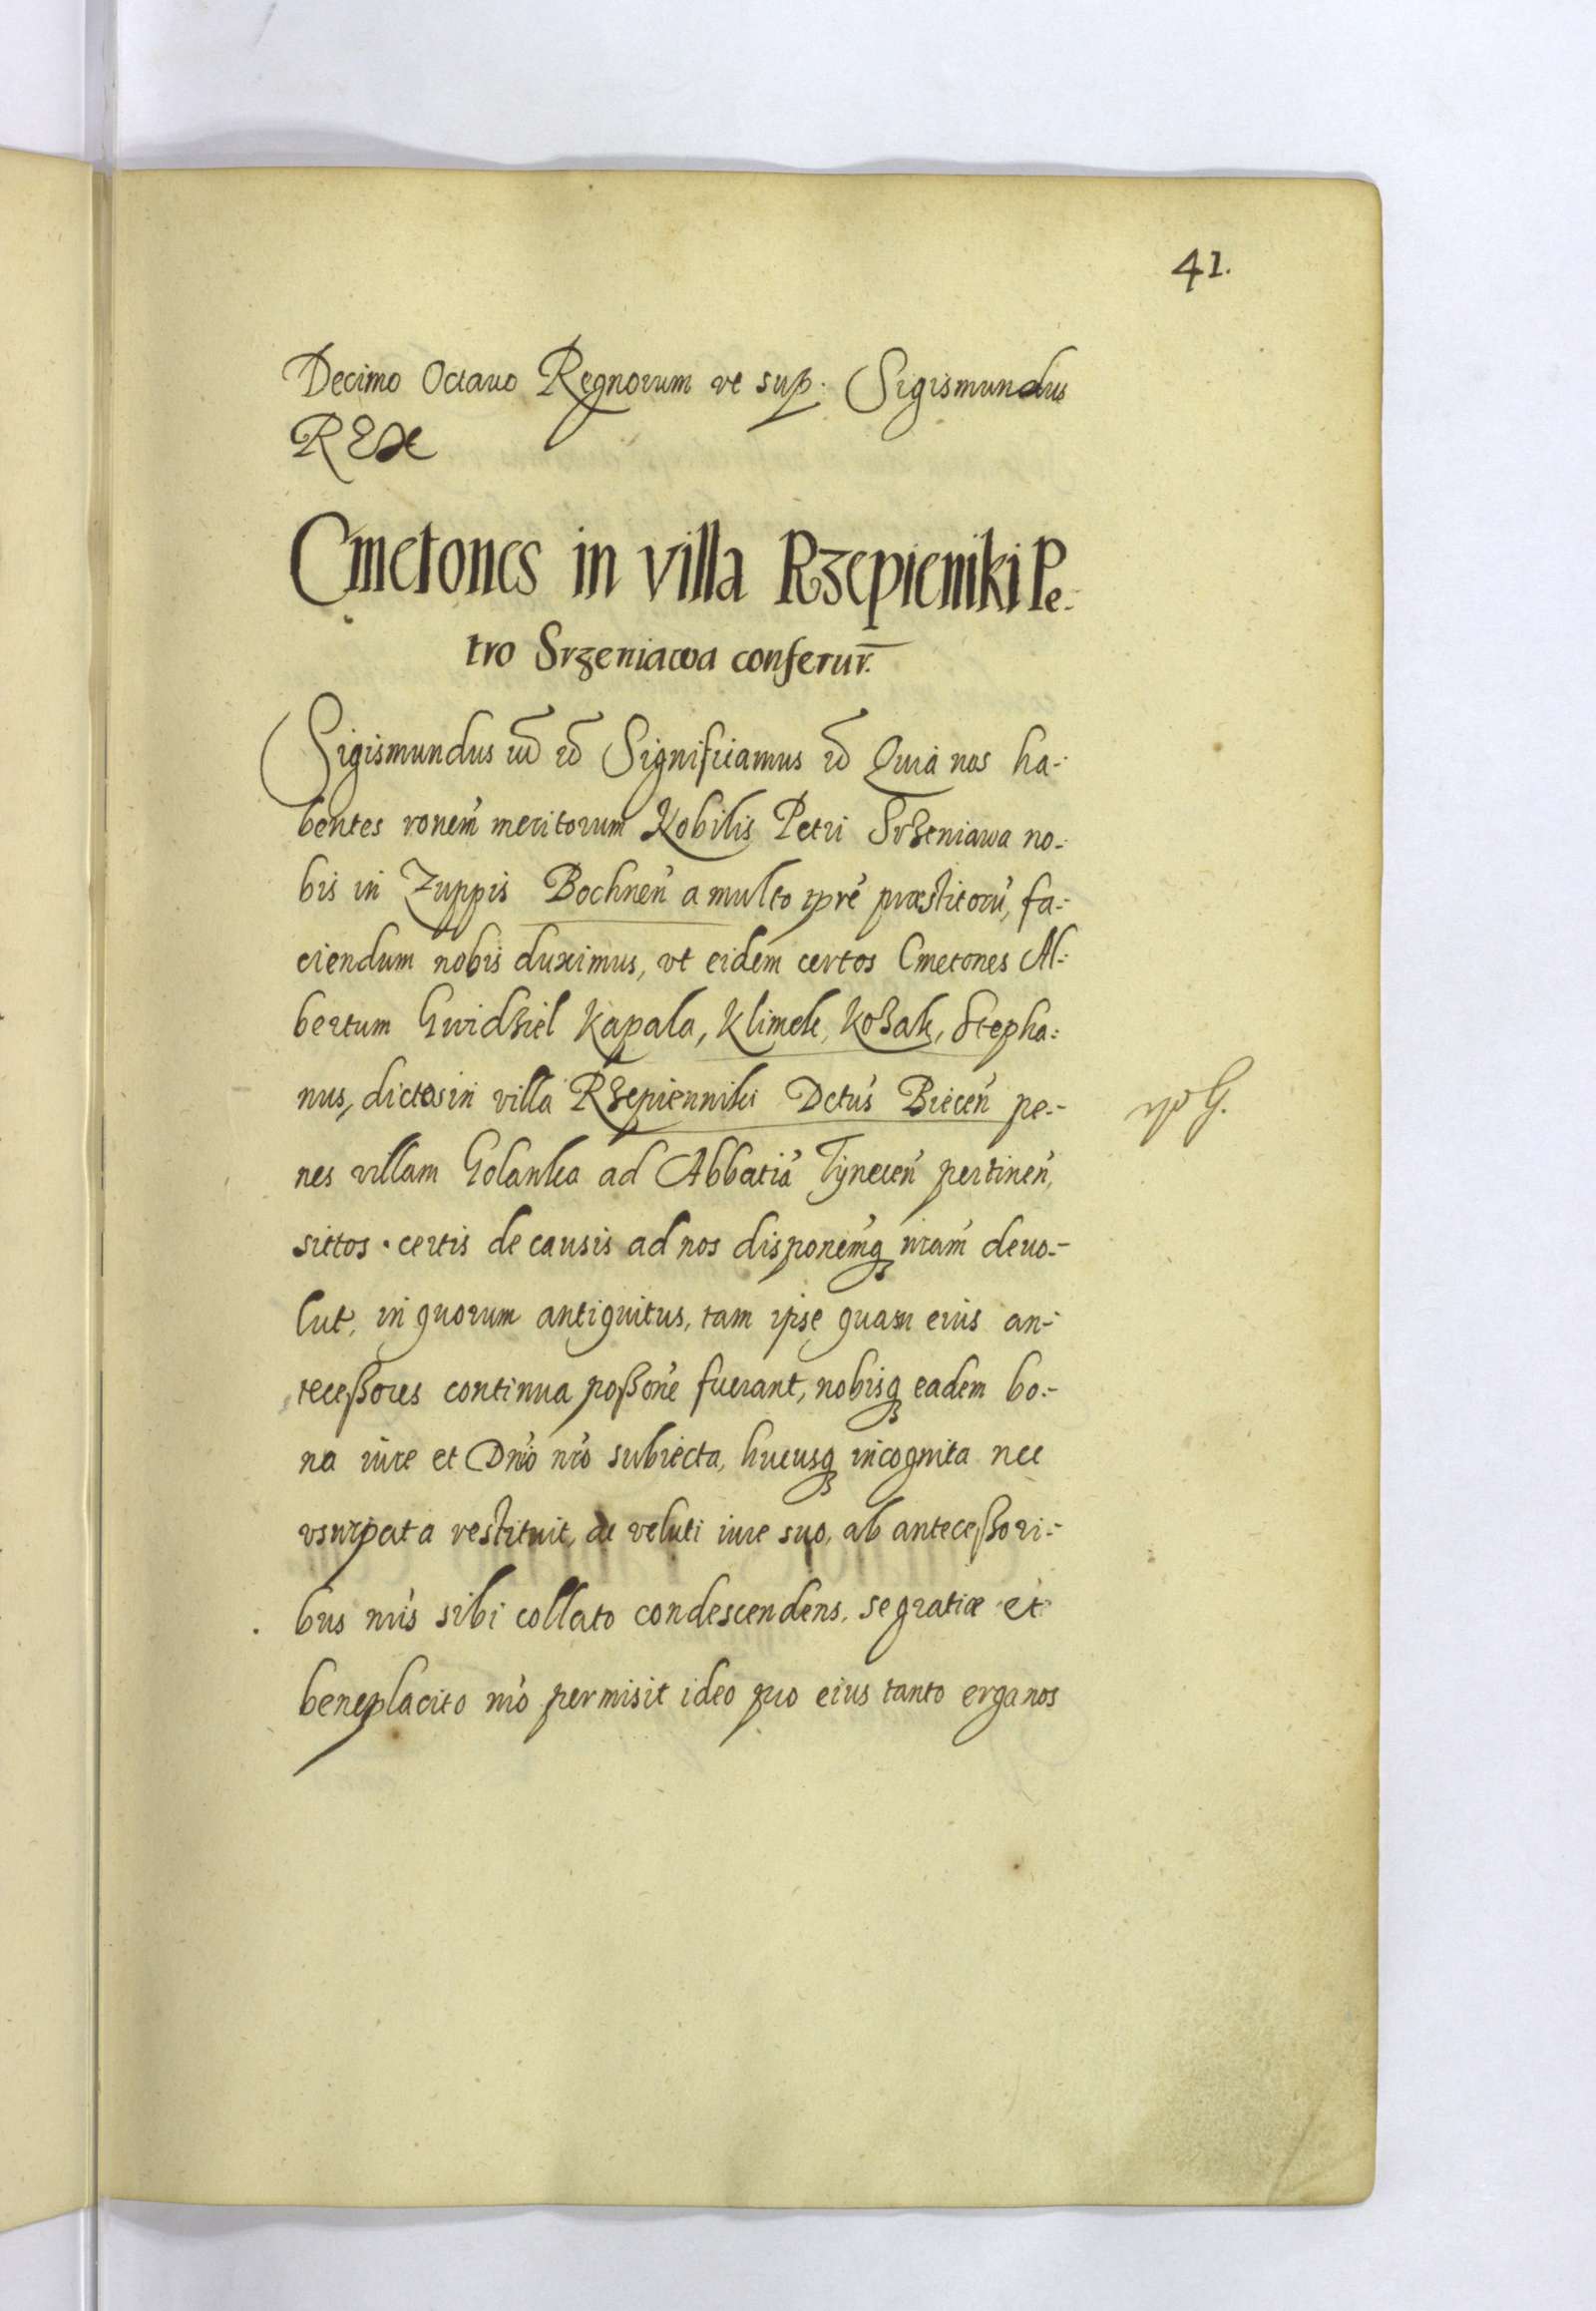 41.
Decimo Octauo Regnorum vt sup. Sigismundus
REX
Cmetones in villa Rzepieniki Pe-
tro Srzeniawa conferunt̃.
Sigismundus Significamus Quia nos ha-
bentes ronem̃ meritorum Nobilis Petri Srzeniawa no-
bis in Zuppis Bochneń a multo tp̃re præstitorũ, fa-
ciendum nobis duximus, vt eidem certos Cmetones Al-
bertum Gwidziel Kapala, Klimek, Kozak, Stepha-
nus, dictos in villa Rzepienniki Dctus̃ Biecen̄ pe-
nes villam Golanka ad Abbatiã Tÿnecen̄ pertinen̄,
sittos. certis de causis ad nos disponem̃q₃ nr̃am deuo-
lut, in quorum antiquitus, tam ipse quam eius an-
teceßores continua poßonẽ fuerant, nobisq₃ eadem bo-
na iure et Dnĩo nr̃o subiecta, hucusq₃ incognita nec
vsurpata restituit, ac veluti iure suo, ab anteceßori-
bus nr̃is sibi collato condescendens, se gratiæ et
beneplacito nr̃o permisit ideo pro eius tanto erga nos